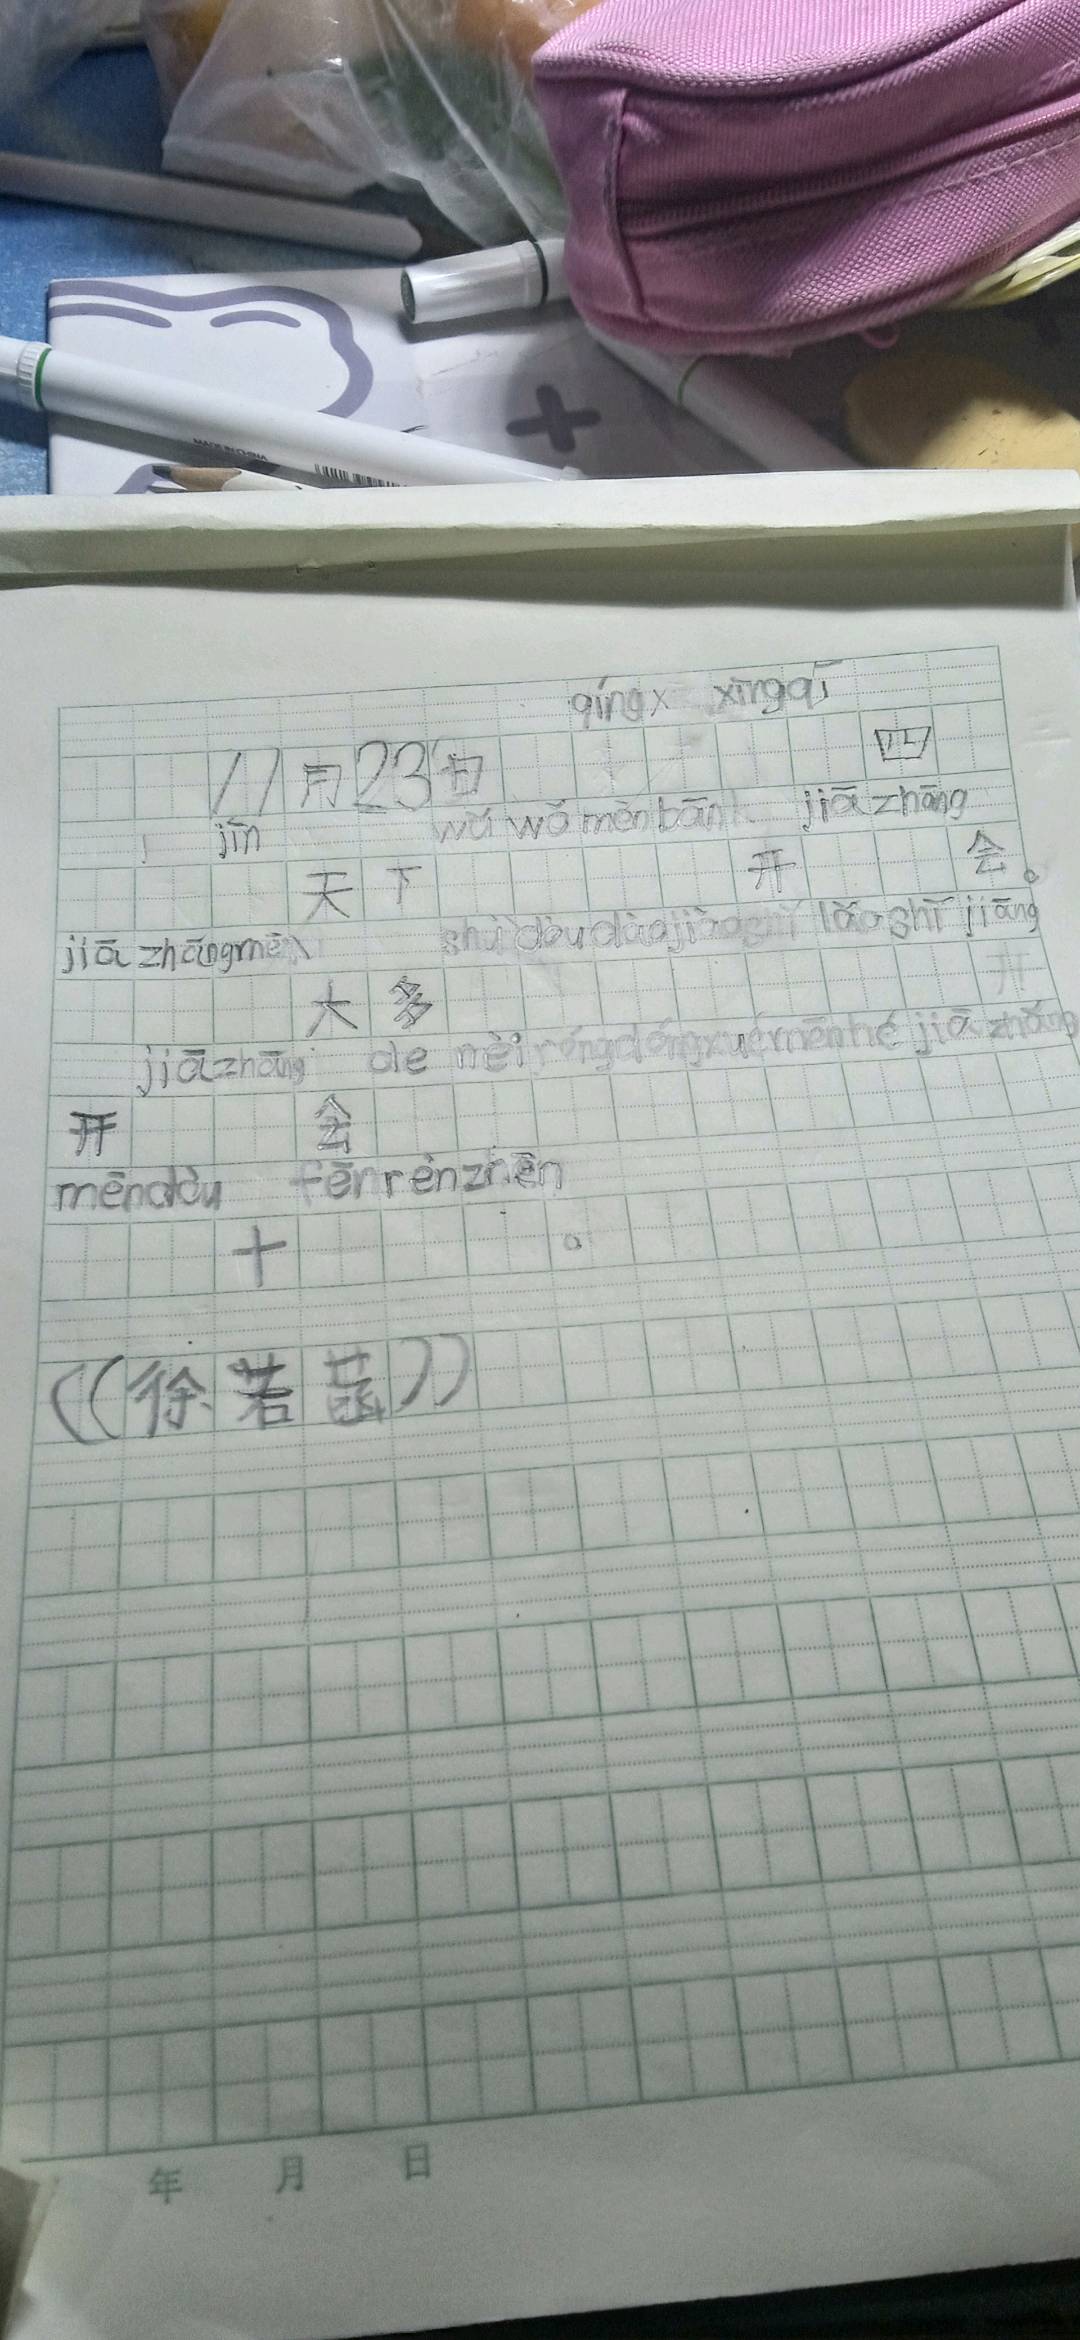 MADE IN CHINA
qíngx xīngqī
11月23日 四
jīn wǔ wǒ mèn bān jiā zhāng
天下 开 会。
jiā zhāngmēn shùdōudàojiàoshì lǎo shī jiāng
大多
jiāzhāng de nèiróngdóngxuémēnhé jiā zhǎng
开 会
mēndōu fēnrènzhēn
十 。
((徐若菡))
年 月 日